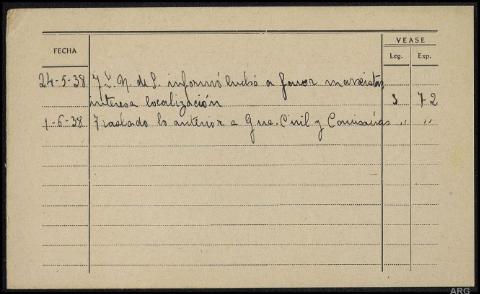 VEASE
FECHA
Leg. Exp.
24-5-38 J. S. N. de S. informó luchó a favor marxistas,
interesa localización 3 72
1-6-38 Traslado lo anterior a Gua. Civil y Comisarías " "
ARG